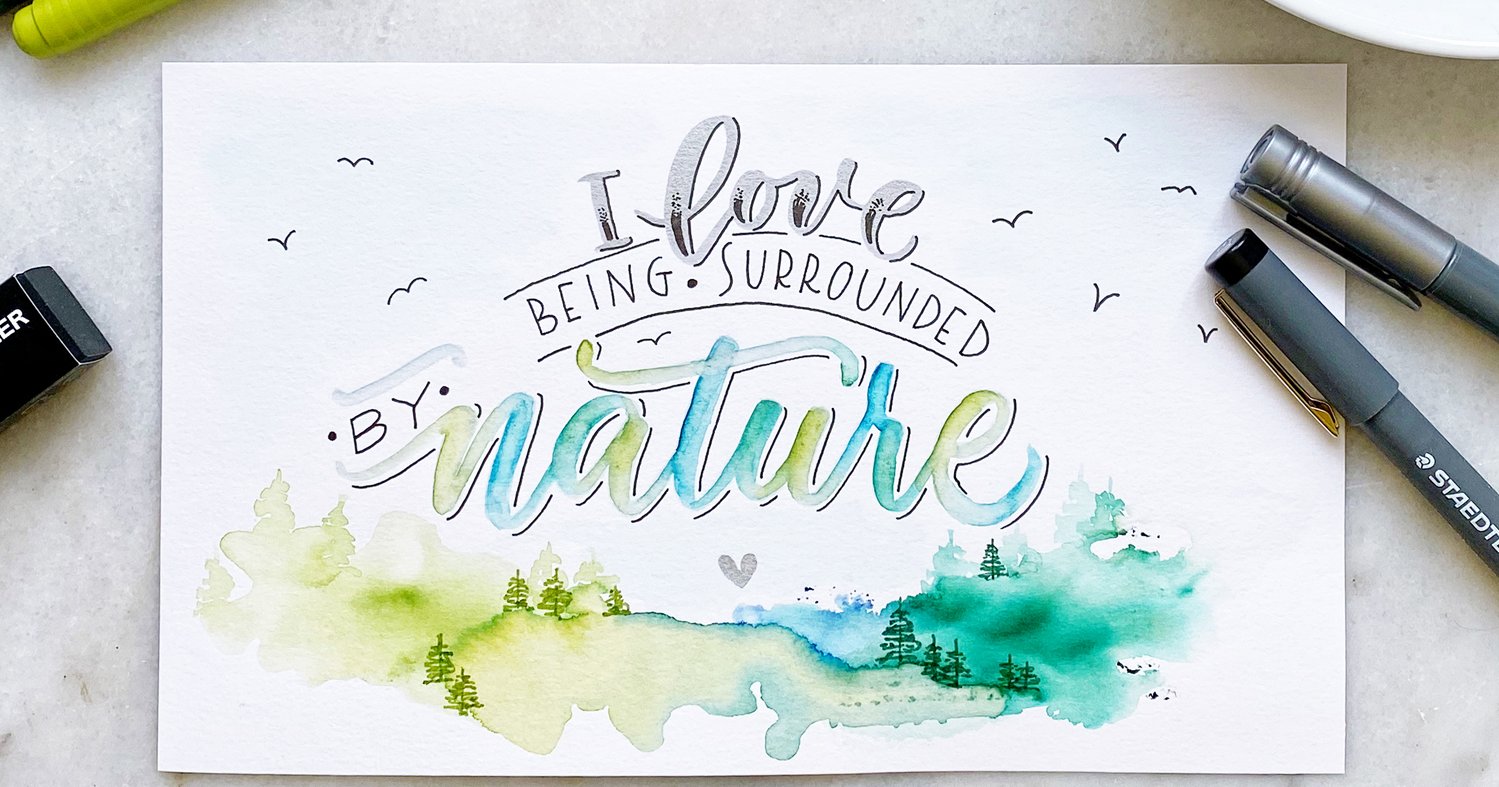 I love
BEING • SURROUNDED
• BY • nature
ER
STAEDT